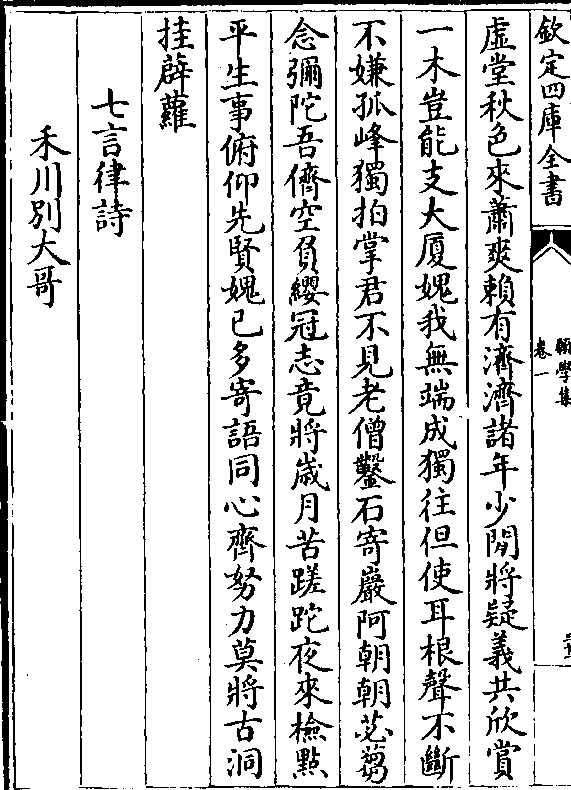 欽定四庫全書
頤學集
卷一
虛堂秋色來蕭爽賴有濟濟諸年少閒將疑義共欣賞
一木豈能支大厦媿我無端成獨往但使耳根聲不斷
不嫌孤峰獨拍掌君不見老僧鑿石寄巖阿朝朝苾蒭
念彌陀吾儕空負纓冠志竟將歲月苦蹉跎夜來檢點
平生事俯仰先賢媿已多寄語同心齊努力莫將古洞
挂薜蘿
七言律詩
禾川別大哥